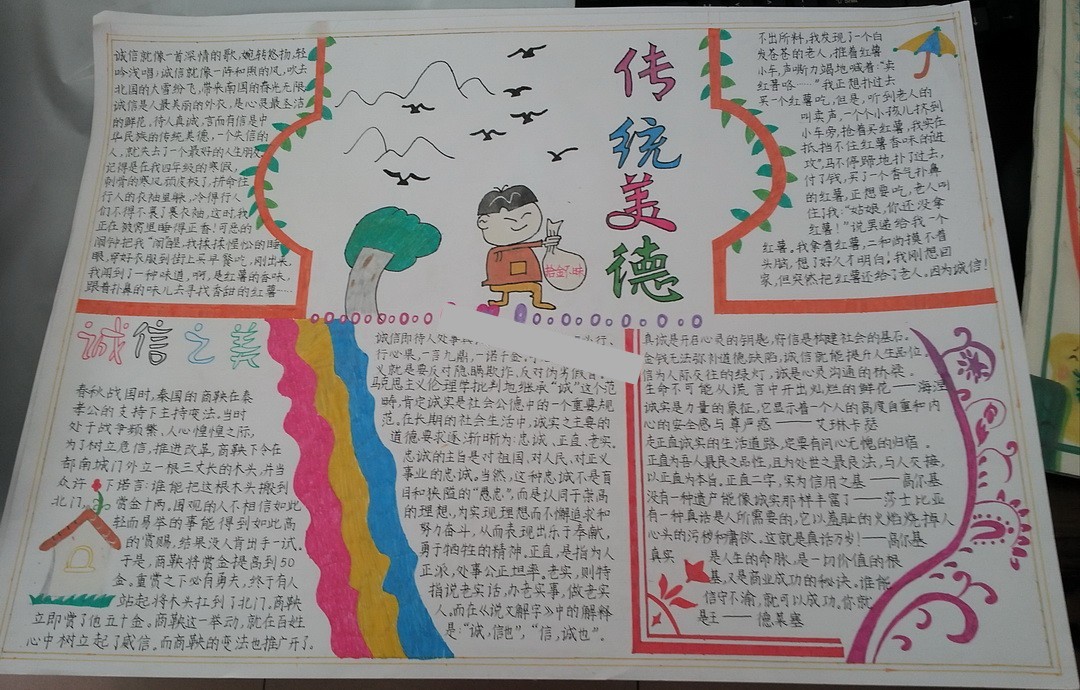 诚信就像一首深情的歌,婉转悠扬,轻
吟浅唱;诚信就像一阵和煦的风,吹去
北国的大雪纷飞,带来南国的春光无限
诚信是人最美丽的外衣,是心灵最圣洁
的鲜花。待人真诚,言而有信是中
华民族的传统美德,一个失信的
人,就失去了一个最好的人生朋友
记得是在我四年级的寒假,
刺骨的寒风顽皮极了,拼命往
行人的衣袖里躲,冷得行人
们不得不裹了裹衣袖,这时,我
正在被窝里睡得正香!可恶的
闹钟把我“闹醒,我揉揉惺忪的睡
眼,穿好衣服到街上买早餐吃,刚出来,
我闻到了一种味道,啊,是红薯的香味,
跟着扑鼻的味儿去寻找香甜的红薯……
传统美德
拾金不昧
不出所料,我发现了一个白
发苍苍的老人,推着红薯
小车,声嘶力竭地喊着:“卖
红薯咯……”我正想扑过去
买一个红薯吃,但是,听到老人的
叫卖声,一个个小孩儿挤到
小车旁,抢着买红薯,我实在
抵挡不住红薯香味的进
攻”,马不停蹄地扑了过去,
付了钱,买了一个香气扑鼻
的红薯,正想要吃,老人叫
住了我:“姑娘,你还没拿
红薯!”说罢递给我一个
红薯。我拿着红薯,二和尚摸不着
头脑,想了好久才明白!我刚想回
家,但突然把红薯还给了老人。因为诚信!
诚信之美
春秋战国时,秦国的商鞅在秦
孝公的支持下主持变法。当时
处于战争频繁、人心惶惶之际,
为了树立危信,推进改革,商鞅下令在
都南城门外立一根三丈长的木头,并当
众许下诺言:谁能把这根木头搬到
北门,赏金十两,围观的人不相信如此
轻而易举的事能得到如此高
的赏赐,结果没人肯出手一试。
于是,商鞅将赏金提高到50
金。重赏之下必有勇夫,终于有人
站起将木头扛到了北门。商鞅
立即赏了他五十金。商鞅这一举动,就在百姓
心中树立起了威信。而商鞅的变法也推广开了。
诚信即待人处事
行必果,一言九鼎,一诺千金。
义就是要反对隐瞒欺诈、反对伪劣假冒。
马克思主义伦理学批判地继承“诚”这个范
畴,肯定诚实是社会公德中的一个重要规
范。在长期的社会生活中,诚实之主要的
道德要求逐渐晰为:忠诚、正直、老实。
忠诚的主旨是对祖国、对人民、对正义
事业的忠诚。当然,这种忠诚不是盲
目和狭隘的“愚忠”,而是认同于崇高
的理想,为实现理想而不懈追求和
努力奋斗,从而表现出乐于奉献,
勇于牺牲的精神。正直,是指为人
正派,处事公正坦率。老实,则特
指说老实话,办老实事,做老实
人。而在《说文解字》中的解释
是:“诚,信也”,“信,诚也”。
真诚是开启心灵的钥匙,待信是构建社会的基石。
金钱无法弥补道德缺陷,诚信就能提升人生品位。
信为人际交往的绿灯,诚是心灵沟通的桥梁。
生命不可能从谎言中开出灿烂的鲜花——海涅
诚实是力量的象征,它显示着一个人的高度自重和内
心的安全感与尊严感——艾琳卡瑟
走正直诚实的生活道路,定要有问心无愧的归宿。
正直为吾人最良之品性,且为处世之最良法,与人交接,
以正直为本旨。正直二字,实为信用之基——高尔基
没有一种遗产能像诚实那样丰富了——莎士比亚
有一种真话是人所需要的,它以羞耻的火焰烧掉人
心头的污秽和庸欲。这就是真话万岁!——高尔基
真实是人生的命脉,是一切价值的根
基,又是商业成功的秘诀,谁能
信守不渝,就可以成功。你就
是王——德莱塞